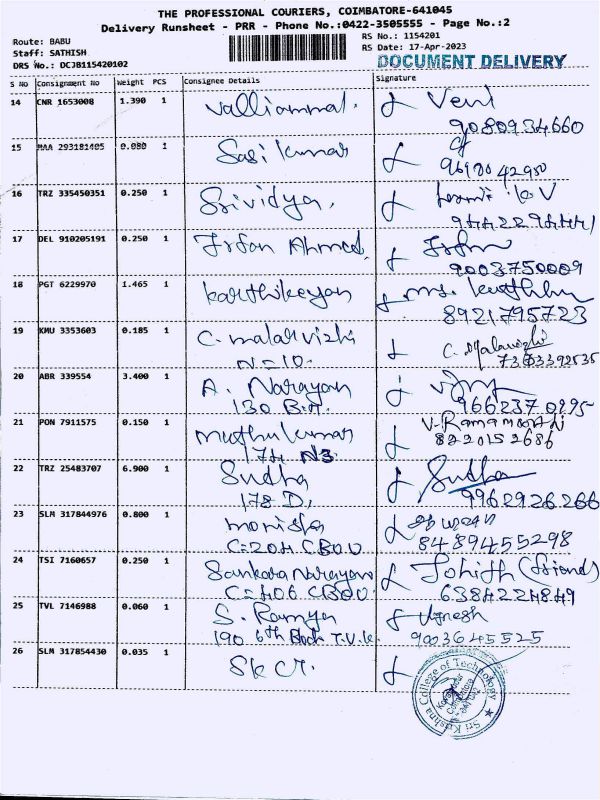 THE PROFESSIONAL COURIERS, COIMBATORE-641045
Delivery Runsheet - PRR - Phone No.:0422-3505555 - Page No.:2
Route: BABU
RS No.: 1154201
Staff: SATHISH
RS Date: 17-Apr-2023
DRS No.: DCJB115420102
DOCUMENT DELIVERY
S No Consignment No Weight PCS Consignee Details Signature
14 CNR 1653008 1.390 1 Valliammal.
9080934660
15 MAA 293181405 0.080 1 Sasikumar
16 TRZ 335450351 0.250 1 Srividya,
17 DEL 910205191 0.250 1 Irfan Ahmed, Irfan
9003750009
18 PGT 6229970 1.465 1 Karthikeyan
8921795723
19 KMU 3353603 0.185 1 C. malarvizhi C. Malarvizhi
N=10.
20 ABR 339554 3.400 1 A. Narayan
130
21 PON 7911575 0.150 1 muthukumar V. Ramamoorthi
174 N3 8220152686
22 TRZ 25483707 6.900 1 Sudha Sudha
178 D, 9962926266
23 SLM 317844976 0.800 1 monisha
C=204 CBOU 8489455298
24 TSI 7160657 0.250 1 Sankara Narayan (friend)
C=406 CBOU 6384224849
25 TVL 7146988 0.060 1 S. Ramya Vignesh
190 6th Block T.V.K. 9003645525
26 SLM 317854430 0.035 1 SKCT.
Sri Krishna College of Technology
Coimbatore